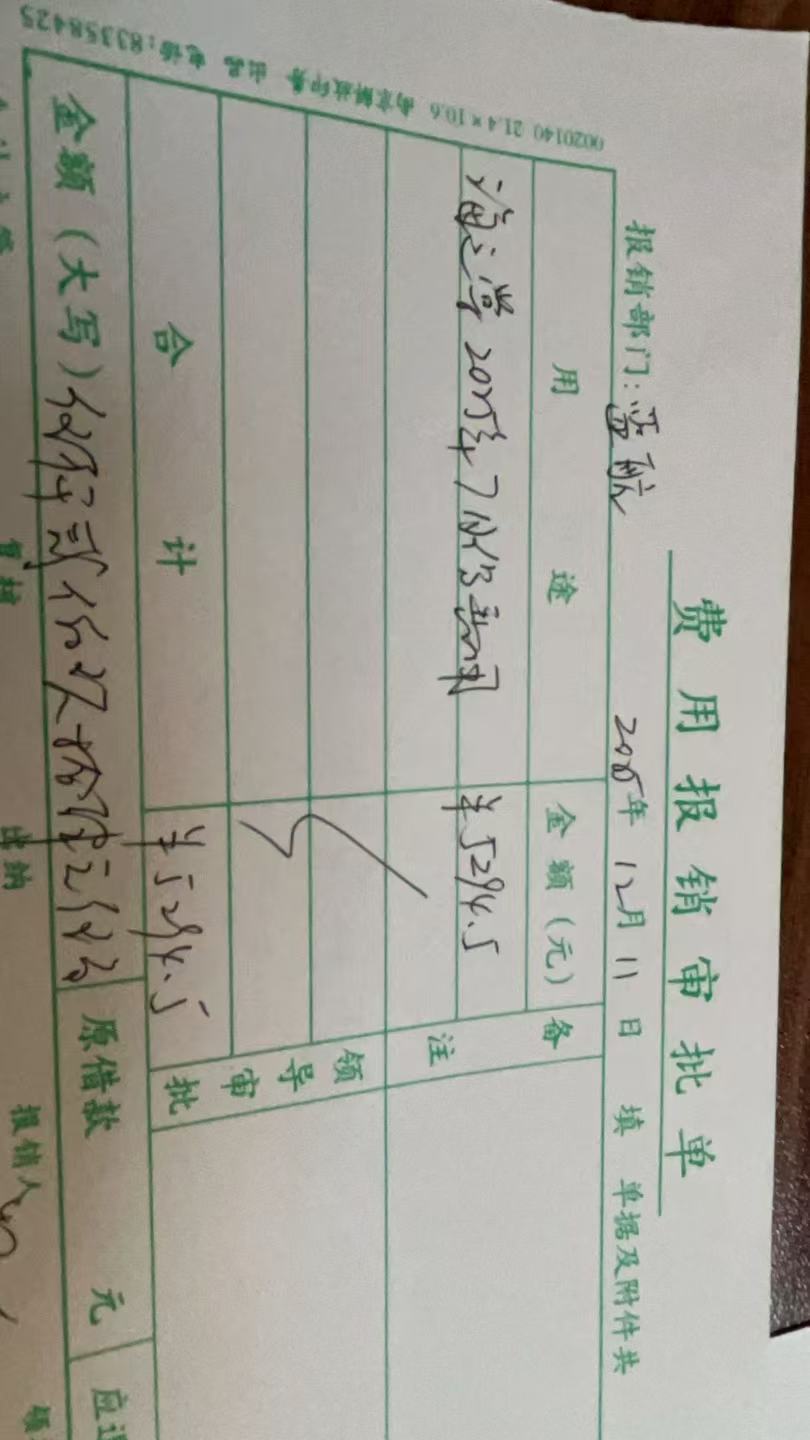 费用报销审批单
报销部门：蓝航 2025年12月11日 填 单据及附件共
用途 金额(元) 备注
海之学2025年7月份费用 ¥5294.5
领导审批
合计 ¥5294.5
金额(大写)伍仟贰佰玖拾肆元伍角 原借款 元 应退
复核 出纳 报销人
0020140 21.4×10.6 南京解放印务 出品 电话:83358425